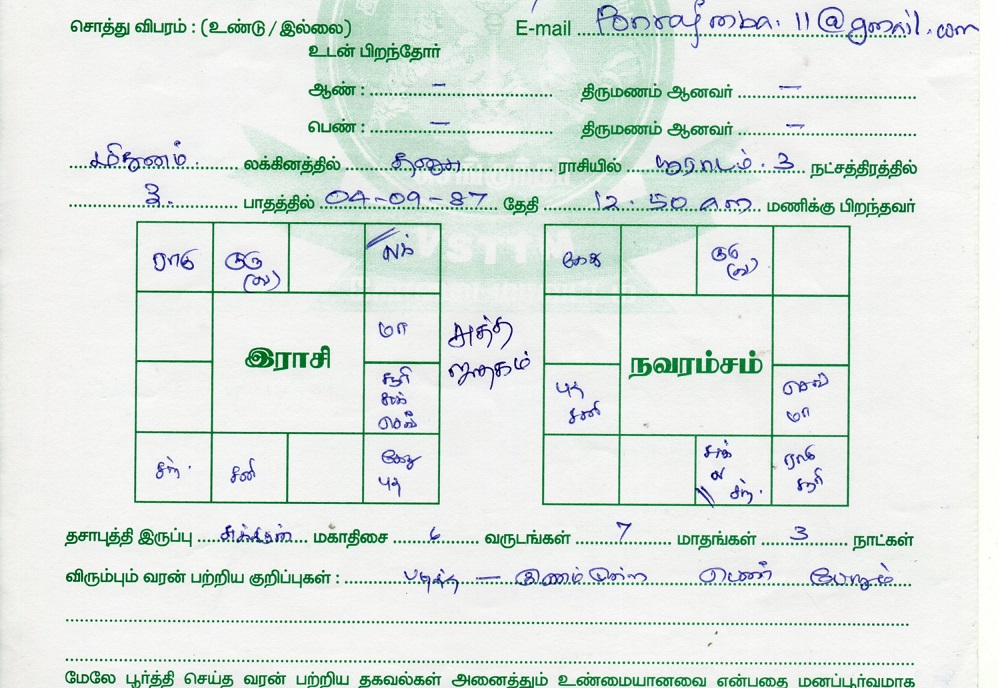 சொத்து விபரம் : (உண்டு / இல்லை) E-mail ponrajmba.11@gmail.com
உடன் பிறந்தோர்
ஆண் : – திருமணம் ஆனவர் –
பெண் : – திருமணம் ஆனவர் –
மிதுனம் லக்கினத்தில் தனுசு ராசியில் பூராடம். 3 நட்சத்திரத்தில்
3. பாதத்தில் 04-09-87 தேதி 12.50 am மணிக்கு பிறந்தவர்
ராகு குரு (வ) லக்
மா
இராசி
சூரி சுக் செவ்
சந். சனி கேது புத
சுத்த ஜாதகம்
கேது குரு (வ)
நவரம்சம்
புத சனி செவ் மா
சுக் ல சந். ராகு சூரி
தசாபுத்தி இருப்பு சுக்கிரன் மகாதிசை 6 வருடங்கள் 7 மாதங்கள் 3 நாட்கள்
விரும்பும் வரன் பற்றிய குறிப்புகள் : படித்த – குணம் முள்ள பெண் போதும்
மேலே பூர்த்தி செய்த வரன் பற்றிய தகவல்கள் அனைத்தும் உண்மையானவை என்பதை மனப்பூர்வமாக